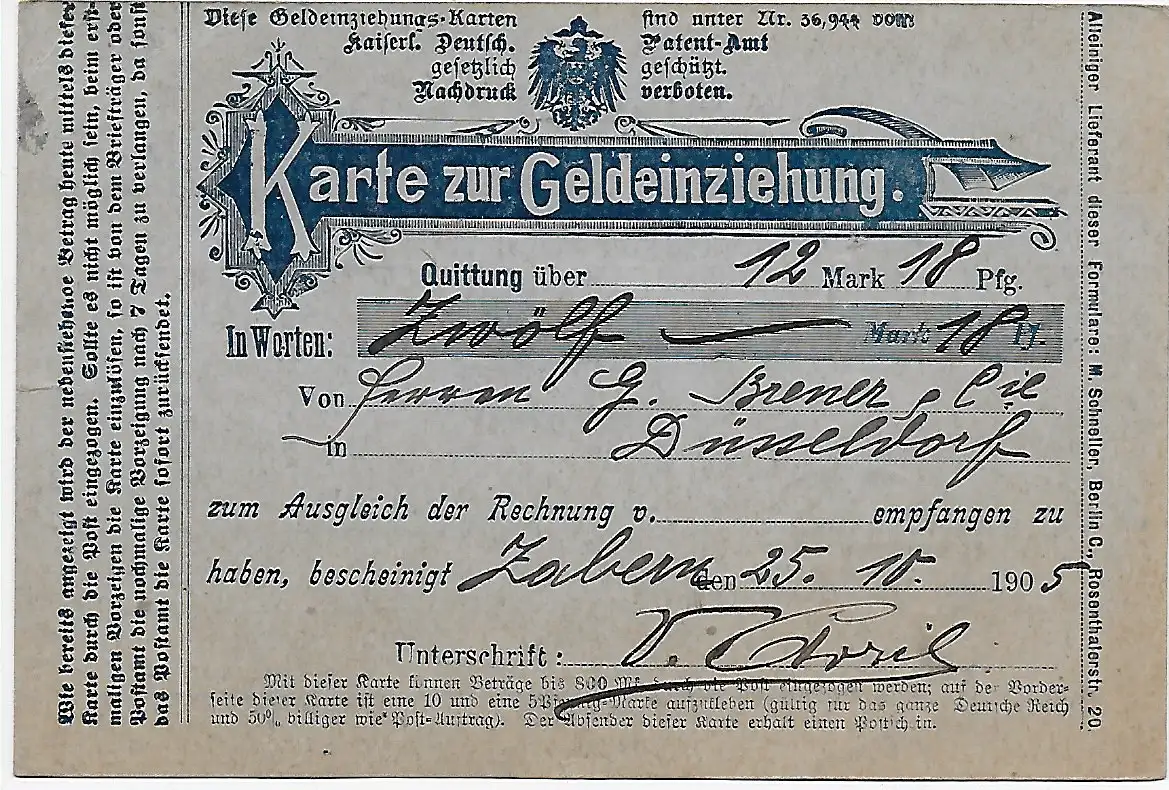 Diese Geldeinziehungs-Karten sind unter Nr. 36,944 vom
Kaiserl. Deutsch. Patent-Amt
gesetzlich geschützt.
Nachdruck verboten.
Karte zur Geldeinziehung.
Quittung über 12 Mark 18 Pfg.
In Worten: Zwölf — Mark 18 Pf.
Von Herrn G. Brener & Cie
in Düsseldorf
zum Ausgleich der Rechnung v. empfangen zu
haben, bescheinigt Zabern den 25. 10. 1905
Unterschrift: V.
Mit dieser Karte können Beträge bis 800 Mk. durch die Post eingezogen werden; auf der Vorder-
seite dieser Karte ist eine 10 und eine 5 Pfennig-Marke aufzukleben (gültig für das ganze Deutsche Reich
und 50% billiger wie Post-Auftrag). Der Absender dieser Karte erhält einen Postsch in.
Wie bereits angezeigt wird der nebenstehende Betrag heute mittels dieser
Karte durch die Post eingezogen. Sollte es nicht möglich sein, beim erst-
maligen Vorzeigen die Karte einzulösen, so ist von dem Briefträger oder
Postamt die nochmalige Vorzeigung nach 7 Tagen zu verlangen, da sonst
das Postamt die Karte sofort zurücksendet.
Alleiniger Lieferant dieser Formulare: M. Schneller, Berlin C., Rosenthalerstr. 20.